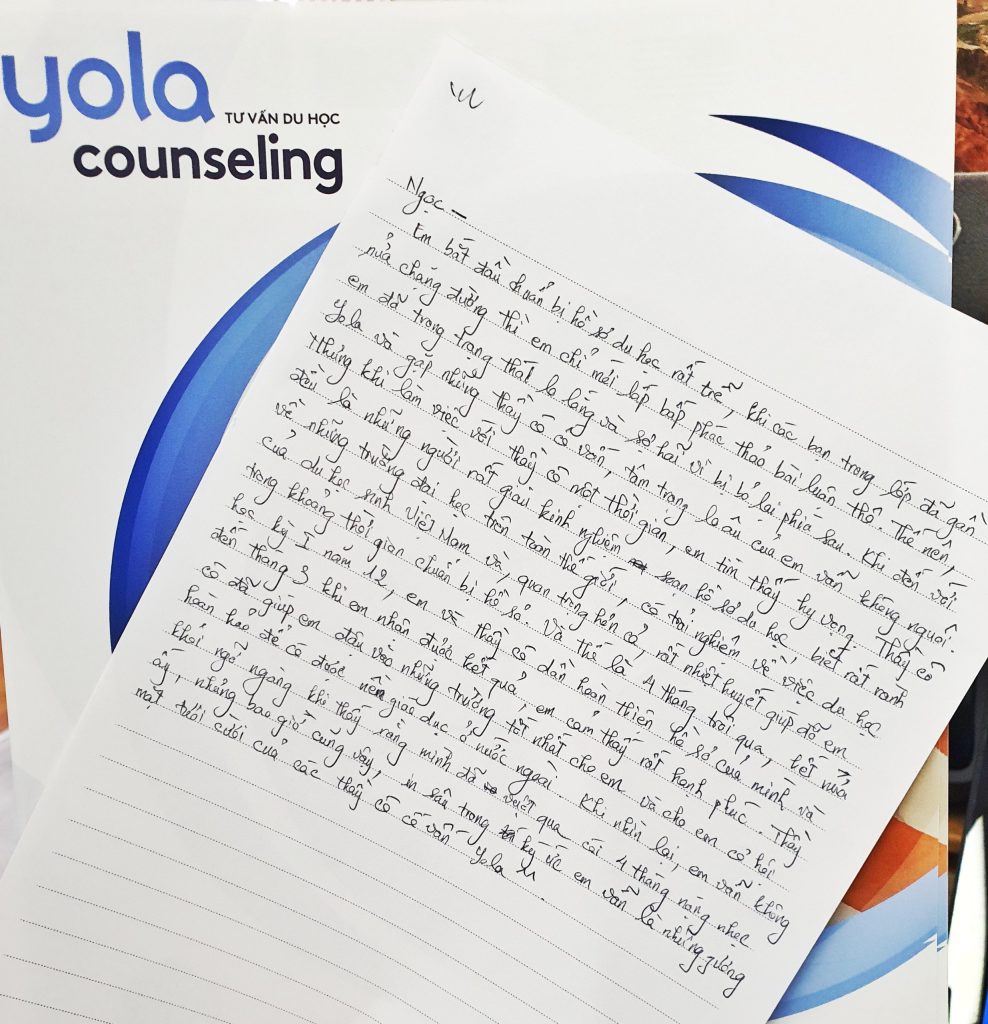 yola
TƯ VẤN DU HỌC
counseling
Ngọc –
Em bắt đầu chuẩn bị hồ sơ du học rất trễ, khi các bạn trong lớp đã gần
nửa chặng đường thì em chỉ mới lấp bấp phác thảo bài luận thô. Thế nên,
em đã trong trạng thái lo lắng và sợ hãi vì bị bỏ lại phía sau. Khi đến với
Yola và gặp những thầy cô cố vấn, tâm trạng lo âu của em vẫn không nguôi.
Nhưng khi làm việc với thầy cô một thời gian, em tìm thấy hy vọng. Thầy cô
đều là những người rất giàu kinh nghiệm soạn hồ sơ du học, biết rất rành
về những trường đại học trên toàn thế giới, có trải nghiệm về việc du học
của du học sinh Việt Nam và, quan trọng hơn cả, rất nhiệt huyết giúp đỡ em
trong khoảng thời gian chuẩn bị hồ sơ. Và thế là 4 tháng trôi qua, hết nửa
học kỳ I năm 12, em và thầy cô dần hoàn thiện hồ sơ của mình và
đến tháng 3 khi em nhận được kết quả, em cảm thấy rất hạnh phúc. Thầy
cô đã giúp em đậu vào những trường tốt nhất cho em và cho em cơ hội
hoàn hảo để có được nền giáo dục ở nước ngoài. Khi nhìn lại, em vẫn không
khỏi ngỡ ngàng khi thấy rằng mình đã vượt qua cái 4 tháng nặng nhọc
ấy, nhưng bao giờ cũng vậy, in sâu trong ký ức em vẫn là những gương
mặt tươi cười của các thầy cô cố vấn Yola